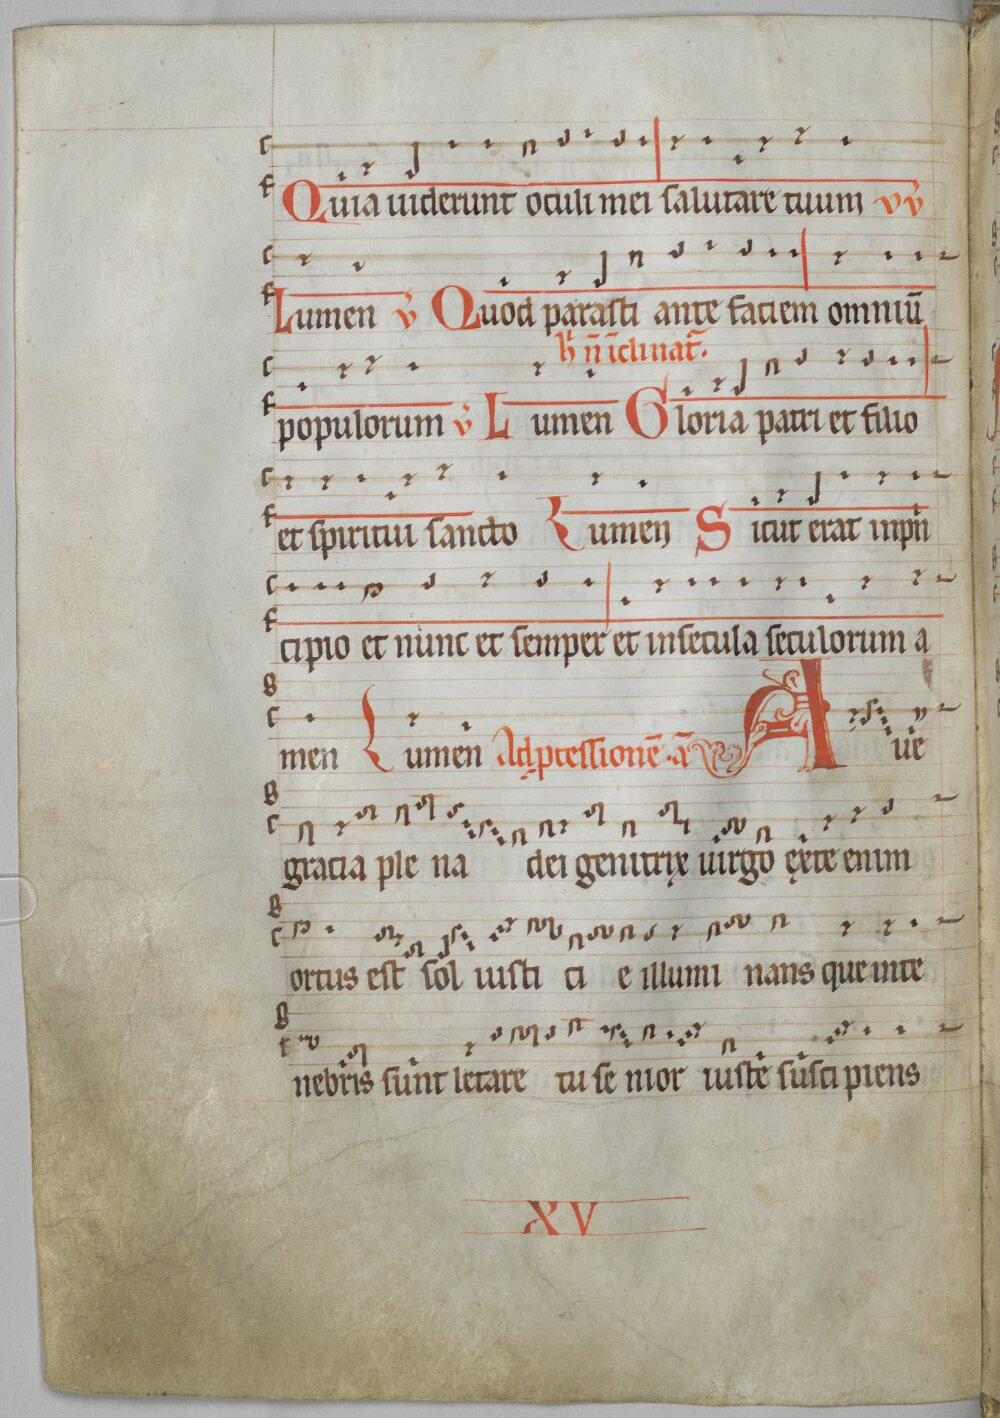 Quia uiderunt oculi mei salutare tuum
Lumen v̄ Quod parasti ante faciem omniū
h̄ n̄ īclinat̄.
populorum v̄ Lumen Gloria patri et filio
et spiritui sancto Lumen Sicut erat inpn̄
cipio et nunc et semper et insecula seculorum a
men Lumen Ad p̱cessionē ā Aue
gracia ple na dei genitrix uirgo exte enim
ortus est sol iusti ci e illumi nans que inte
nebris sunt letare tu se nior iuste susci piens
XV